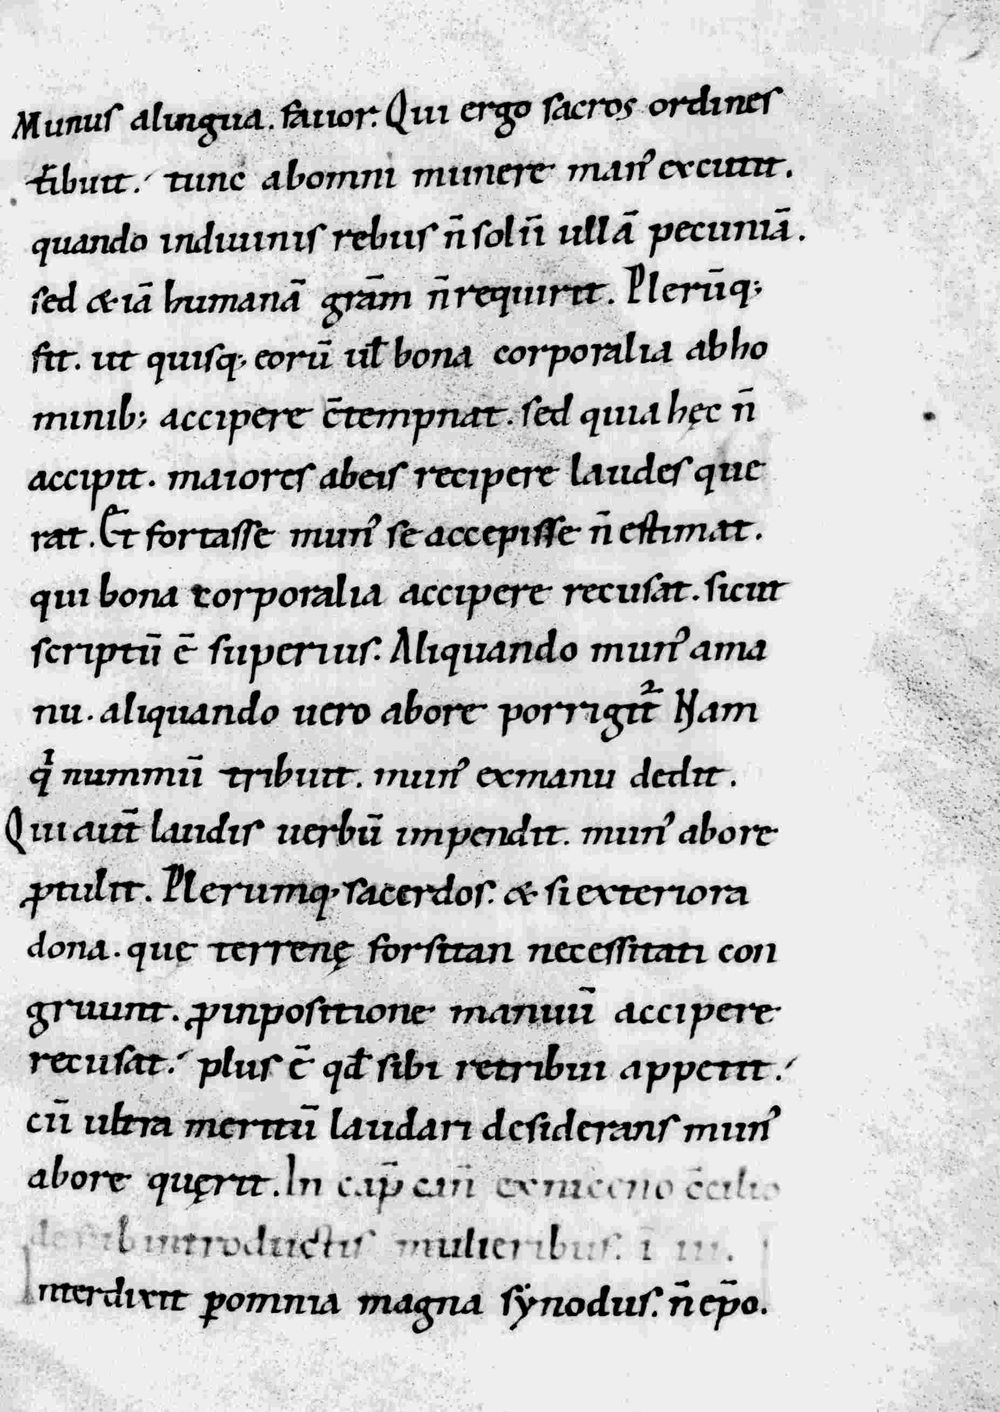 Munus alingua. fauor. Qui ergo sacros ordines
t̄ibuit. tunc abomni munere man᾽ excutit.
quando indiuinis rebus n̄ solū ullā pecuniā.
sed &iā humanā grām n̄ requirit. Plerūq;
fit. ut quisq; eorū ul̄ bona corporalia abho
minib; accipere c̄tempnat. sed quia hęc n̄
accipit. maiores abeis recipere laudes que
rat. Et fortasse mun᾽ se accepisse n̄ estimat.
qui bona corporalia accipere recusat. sicut
scriptū ē superius. Aliquando mun᾽ ama
nu. aliquando uero abore porrigit᷑ Nam
qͥ nummū tribuit. mun᾽ exmanu dedit.
Qui aut̄ laudis uerbū impendit. mun᾽ abore
ꝓtulit. Plerumq; sacerdos. & si exteriora
dona. que terrenę forsitan necessitati con
gruunt. ꝓ inpositione manuū accipere
recusat. plus ē qd̄ sibi retribui appetit.
cū ultra meritū laudari desiderans mun᾽
abore quęrit. In cap̄ can̄ exniceno c̄cilio
de subintroductis mulieribus. ī iii.
Interdixit ꝑomnia magna sẏnodus. n̄ ep̄o.